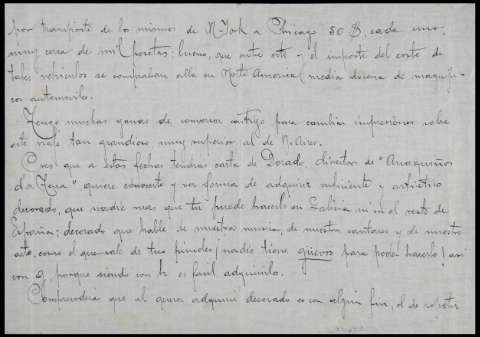 por transporte de los mismos de N-York a Chicago 50 $, cada uno,
muy cerca de mil pesetas; bueno, que ante esto y el importe del coste de
tales vehiculos se compraban alla en Norte America (media docena de magnifi-
cos automoviles.
Tengo muchas ganas de conversar contigo para cambiar impresiones sobre
este viaje tan grandioso muy superior al de B. Aires.
Creo que a estas fechas tendras carta de Dorado director de "Anaquiños
da Terra" quiere conocerte y ver forma de adquirir suficiente y artistico
decorado, que nadie mas que tu puede hacerlo en Galicia ni en el resto de
España; decorado que hable de nuestra musica, de nuestros cantares y de nuestro
arte, como el que sale de tus pinceles (nadie tiene güevos para poder hacerlo! asi
con g, porque siendo con h es facil adquirirlo.
Comprenderia que al querer adquirir decorado es con algun fin, el de